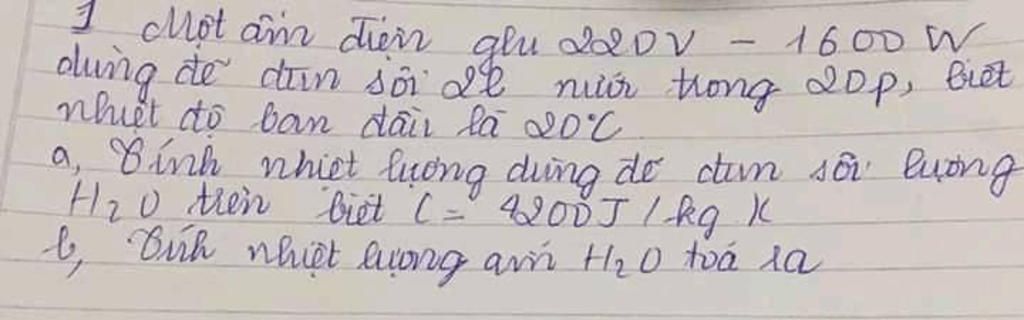 1 Một ấm điện ghi 220V - 1600W
dùng để đun sôi 2l nước trong 20p, biết
nhiệt độ ban đầu là 20°C
a, Tính nhiệt lượng dùng để đun sôi lượng
H2O trên biết C = 4200J/kg K
b, Tính nhiệt lượng ấm H2O toả ra